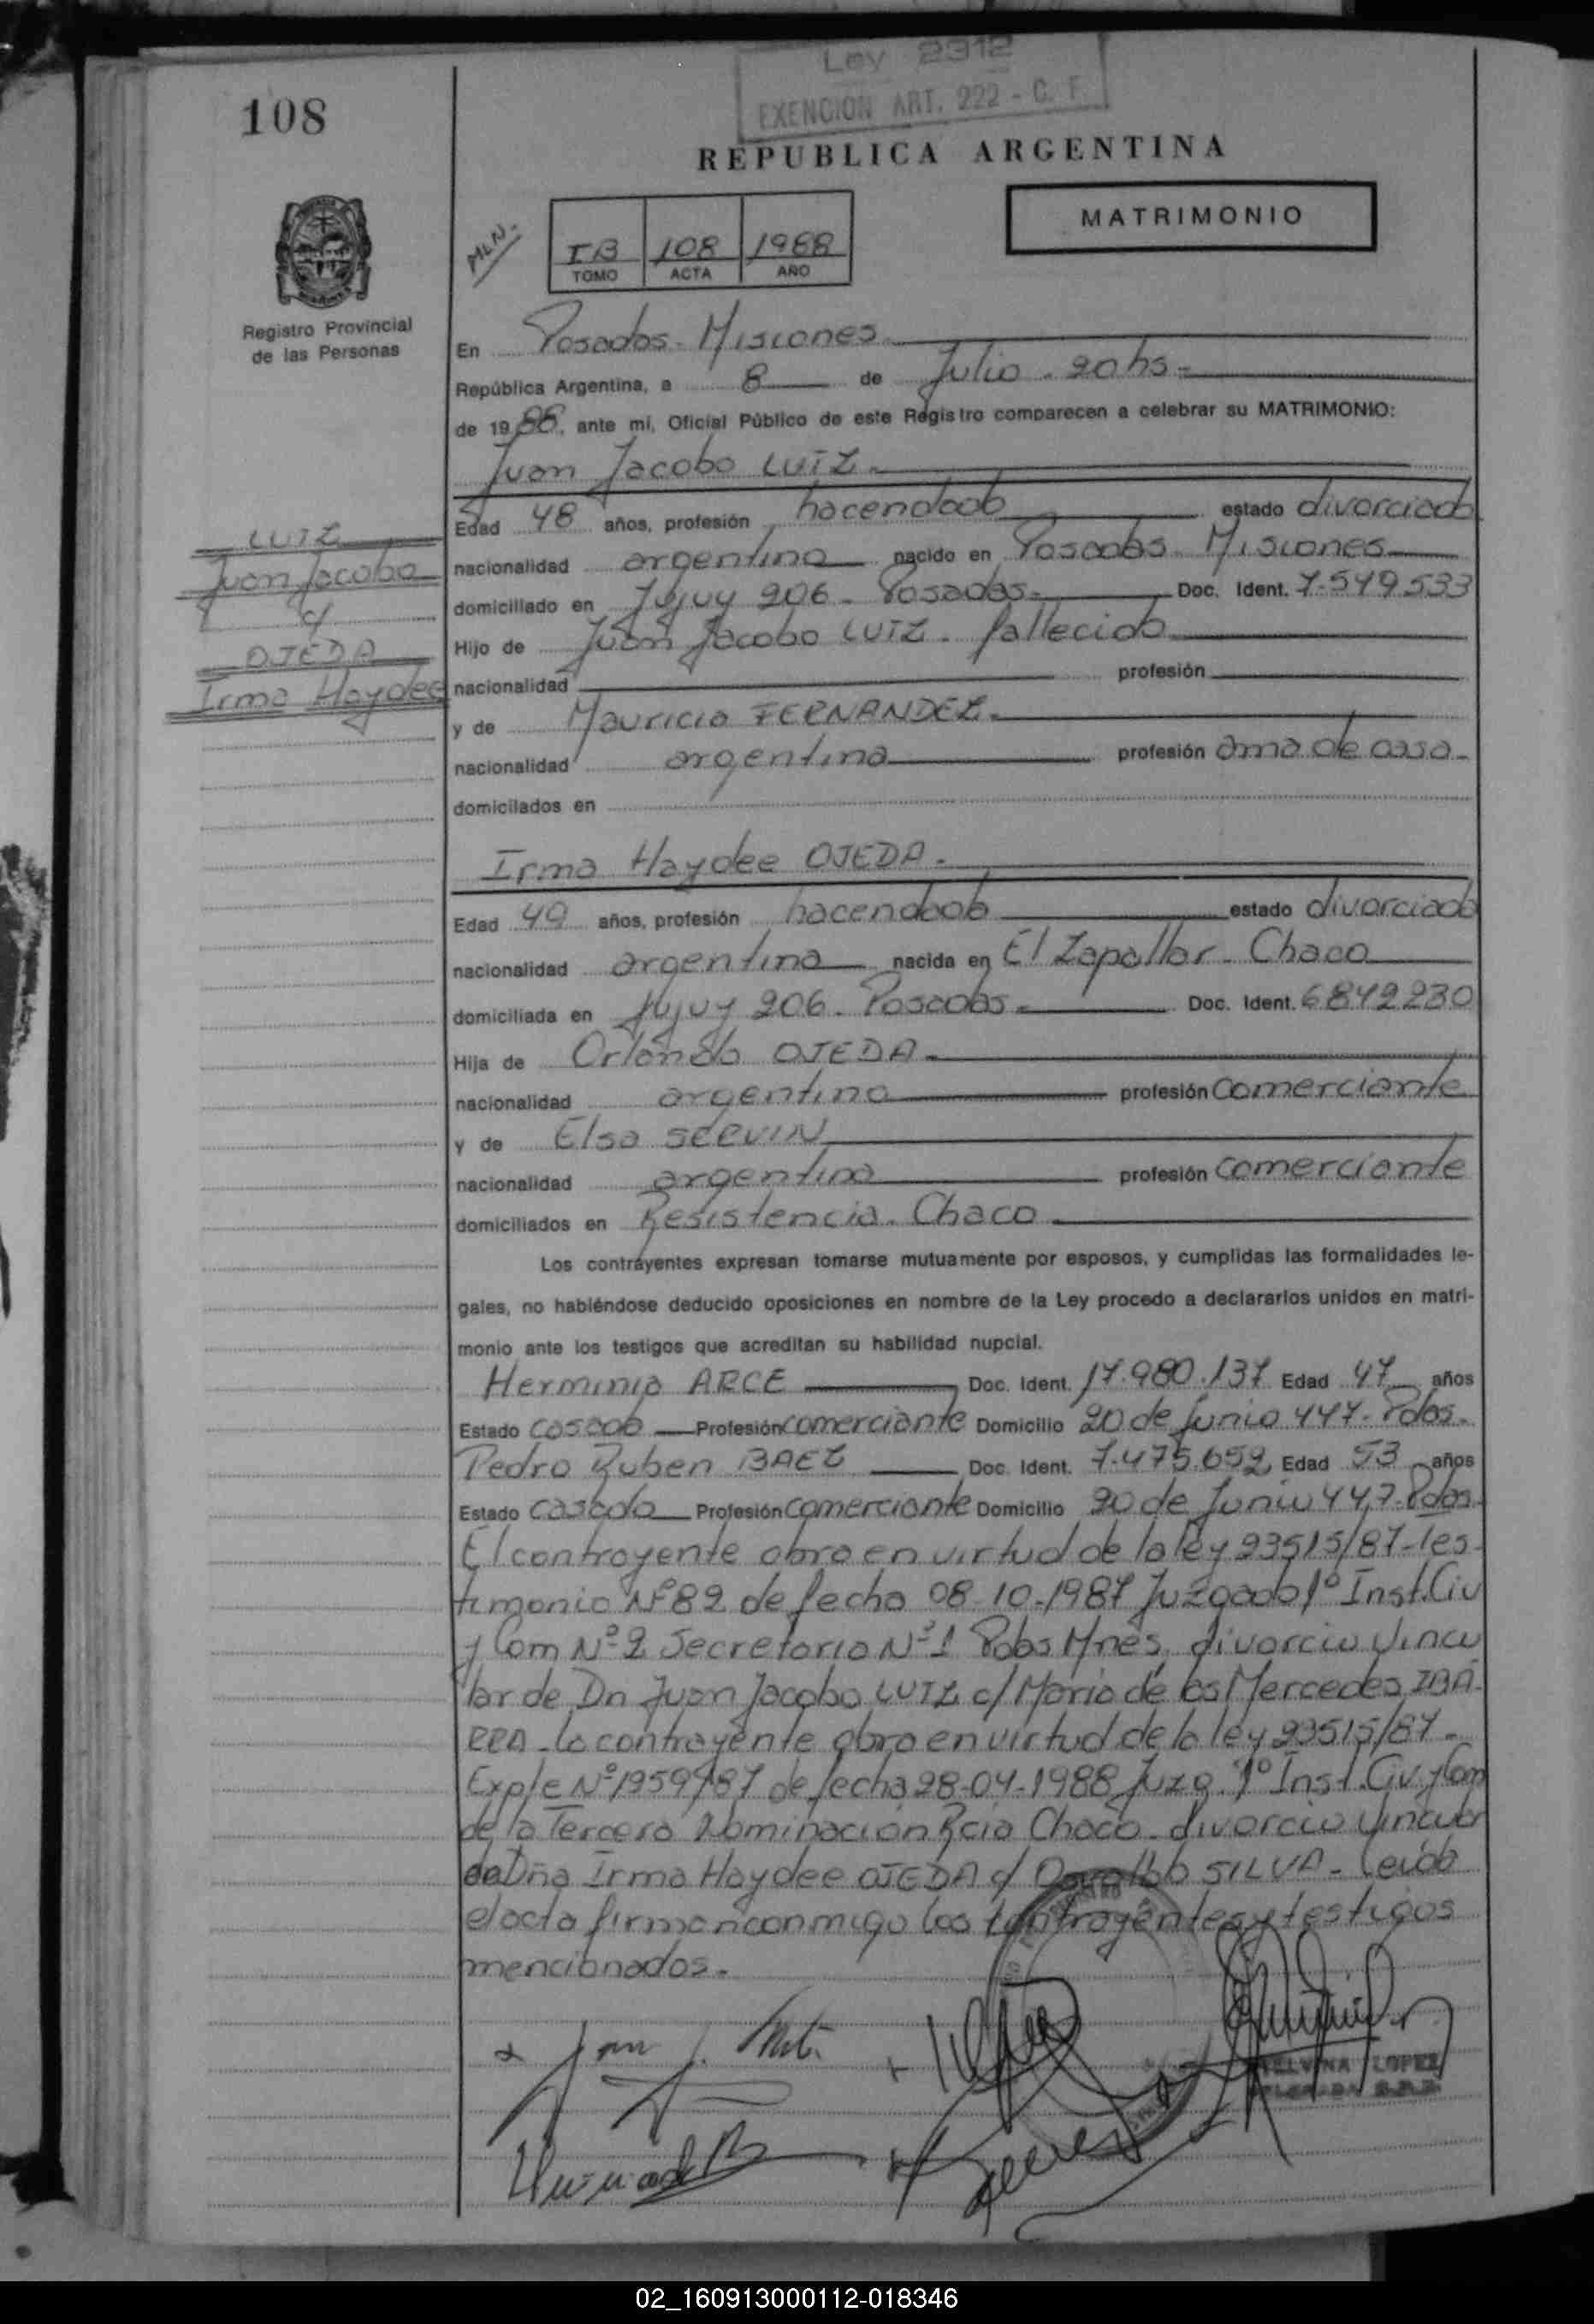 Ley 2312
EXENCION ART. 222 - C. F.
108
REPUBLICA ARGENTINA
MATRIMONIO
MLN.
IB 108 1988
TOMO ACTA AÑO
Registro Provincial
de las Personas
En Posadas - Misiones
República Argentina, a 8 de Julio - 20 hs -
de 1988, ante mí, Oficial Público de este Registro comparecen a celebrar su MATRIMONIO:
Juan Jacobo LUTZ -
Edad 48 años, profesión hacendado estado divorciado
nacionalidad argentina nacido en Posadas Misiones
domiciliado en Jujuy 206 - Posadas - Doc. Ident. 7.549.533
Hijo de Juan Jacobo LUTZ - fallecido
nacionalidad profesión
y de Mauricia FERNANDEZ -
nacionalidad argentina profesión ama de casa -
domicilados en
LUTZ
Juan Jacobo
c/
OJEDA
Irma Haydee
Irma Haydee OJEDA -
Edad 49 años, profesión hacendada estado divorciada
nacionalidad argentina nacida en El Zapallar - Chaco
domiciliada en Jujuy 206 - Posadas - Doc. Ident. 6842230
Hija de Orlando OJEDA -
nacionalidad argentina profesión comerciante
y de Elsa SERVIN
nacionalidad argentina profesión comerciante
domiciliados en Resistencia - Chaco
Los contrayentes expresan tomarse mutuamente por esposos, y cumplidas las formalidades le-
gales, no habiéndose deducido oposiciones en nombre de la Ley procedo a declararlos unidos en matri-
monio ante los testigos que acreditan su habilidad nupcial.
Herminio ARCE Doc. Ident. 17.980.137 Edad 47 años
Estado casado Profesión comerciante Domicilio 20 de Junio 447 - Pdas -
Pedro Ruben BAEZ Doc. Ident. 7.475.652 Edad 53 años
Estado casado Profesión comerciante Domicilio 20 de Junio 447 - Pdas
El contrayente obra en virtud de la ley 23515/87 - Tes-
timonio Nº 82 de fecha 08-10-1987 Juzgado 1º Inst. Civ
y Com Nº 2 Secretaria Nº 1 Pdas Mnes, divorcio vincu
lar de Dn Juan Jacobo LUTZ c/ Maria de las Mercedes IBA-
RRA - La contrayente obra en virtud de la ley 23515/87 -
Expte Nº 1959/87 de fecha 28-04-1988 Juzg. 1º Inst. Civ. y Com
de la Tercera Nominación Rcia Chaco - divorcio vincular
de Dña Irma Haydee OJEDA c/ Osvaldo SILVA - Leída
el acta firman conmigo los contrayentes y testigos
mencionados -
LOPEZ
02_160913000112-018346